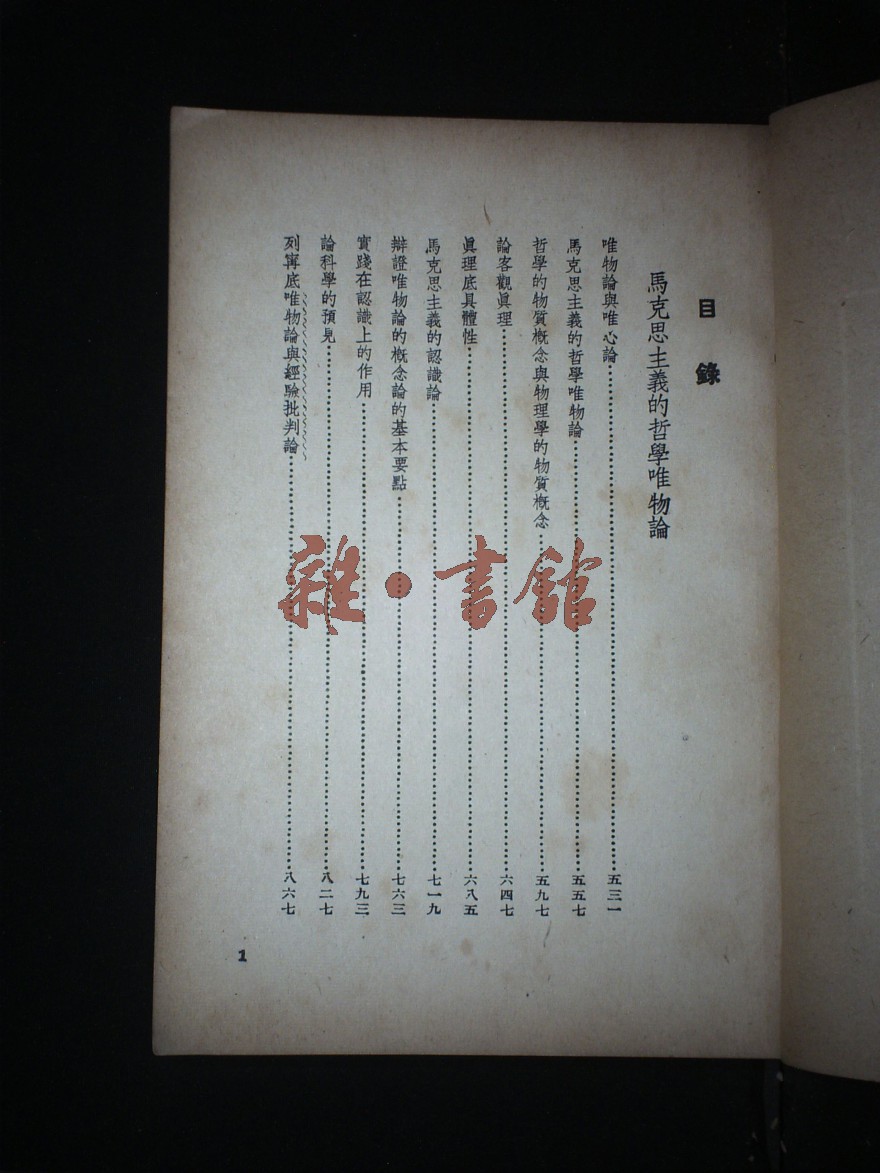 目錄
馬克思主義的哲學唯物論
唯物論與唯心論……五三一
馬克思主義的哲學唯物論……五五七
哲學的物質概念與物理學的物質概念……五九七
論客觀眞理……六四七
眞理底具體性……六八五
馬克思主義的認識論……七一九
辯證唯物論的概念論的基本要點……七六三
實踐在認識上的作用……七九三
論科學的預見……八二七
列寗底唯物論與經驗批判論……八六七
1
雜·書館